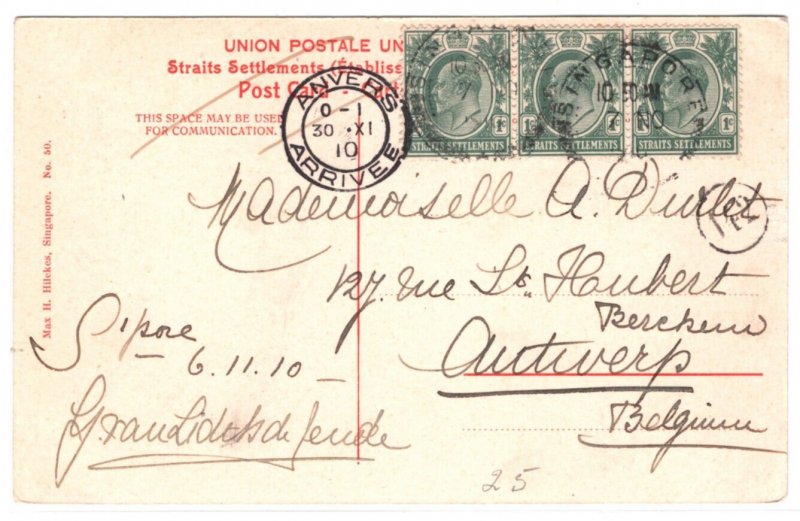 UNION POSTALE UN
Straits Settlements (Établiss
Post Card
THIS SPACE MAY BE USED
FOR COMMUNICATION.
Max H. Hilckes, Singapore. No. 50.
ANVERS
0-1
30 XI
10
ARRIVEE
SINGAPORE
10.30 AM
1c 1c 1c
STRAITS SETTLEMENTS STRAITS SETTLEMENTS STRAITS SETTLEMENTS
Mademoiselle A. Durlet
127, rue St. Houbert
Berchem
Antwerp
Belgium
S'pore
6.11.10
25